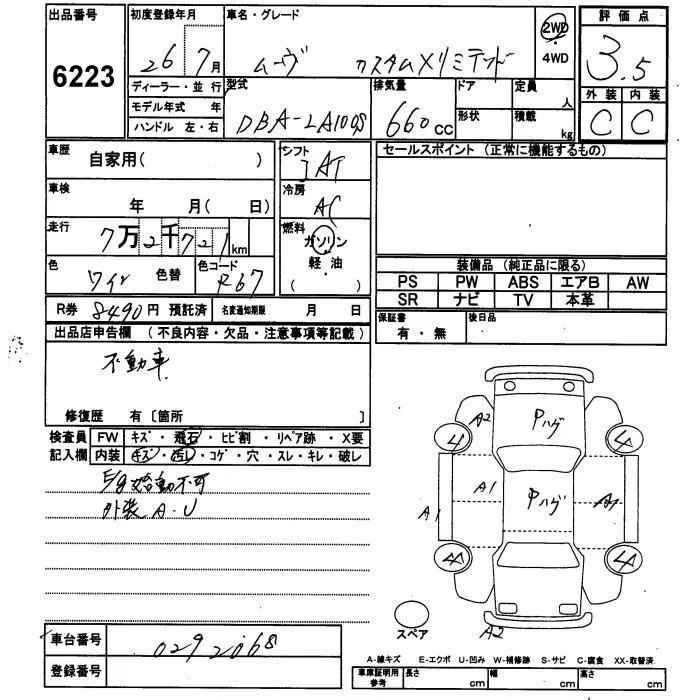 出品番号
6223
初度登録年月
26 7月
車名・グレード
ムーヴ カスタムXリミテッド
2WD
・
4WD
評価点
3.5
外装 内装
C C
ディーラー・並行
モデル年式 年
ハンドル 左・右
型式
DBA-LA100S
排気量
660cc
ドア
形状
定員
人
積載
kg
車歴
自家用( )
車検
年 月( 日)
走行
7万2千721km
色
ワイン
色替
色コード
R67
シフト
IAT
冷房
AC
燃料
ガソリン
軽油
( )
セールスポイント (正常に機能するもの)
装備品 (純正品に限る)
PS PW ABS エアB AW
SR ナビ TV 本革
保証書
有・無
後日品
R券 8490円 預託済 名変通知期限 月 日
出品店申告欄 (不良内容・欠品・注意事項等記載)
不動車
修復歴 有〔箇所 〕
検査員
記入欄
FW キズ・飛石・ヒビ割・リペア跡・X要
内装 キズ・汚レ・コゲ・穴・スレ・キレ・破レ
E/g始動不可
外装A・U
A2
Pハゲ
4
4
A1
A1
Pハゲ
4
4
スペア
A2
車台番号
0292068
登録番号
A-線キズ E-エクボ U-凹み W-補修跡 S-サビ C-腐食 XX-取替済
車庫証明用
参考
長さ cm
幅 cm
高さ cm